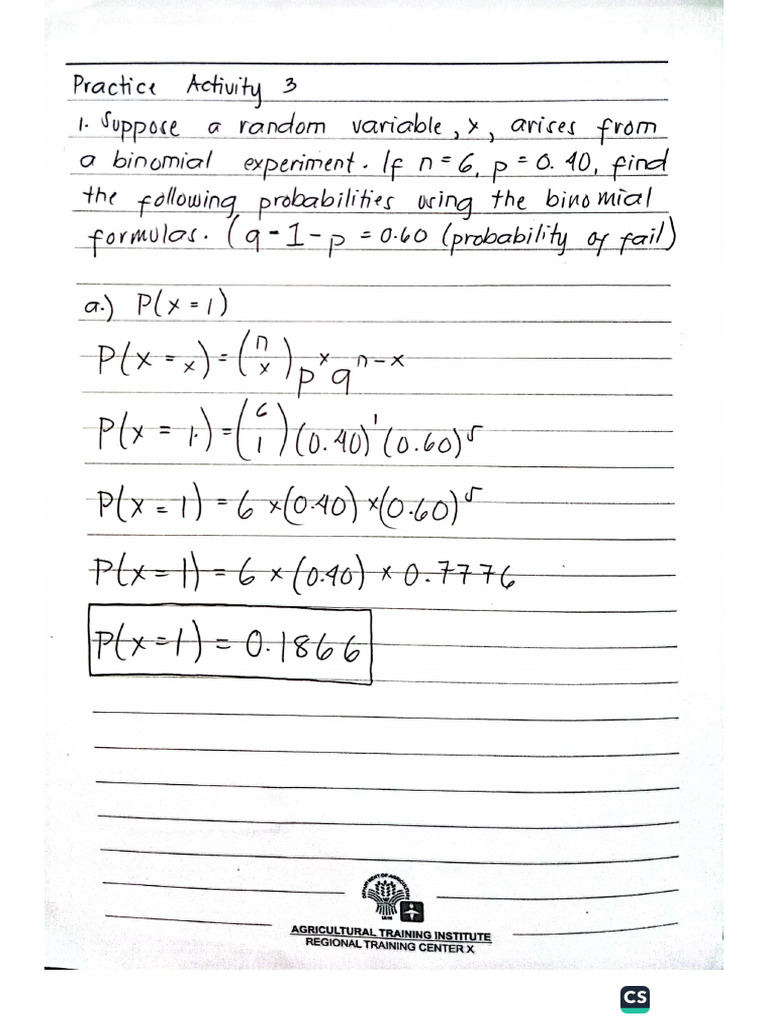 Practice Activity 3
1. Suppose a random variable, x, arises from
a binomial experiment. If n = 6, p = 0.40, find
the following probabilities using the binomial
formulas. (q - 1 - p = 0.60 (probability of fail)
a.) P(x = 1)
P(x = x) = (n x) p^x q^n-x
P(x = 1.) = (6 1) (0.40)^1 (0.60)^5
P(x = 1) = 6 × (0.40) × (0.60)^5
P(x = 1) = 6 × (0.40) × 0.7776
P(x = 1) = 0.1866
DEPARTMENT OF AGRICULTURE
AGRICULTURAL TRAINING INSTITUTE
REGIONAL TRAINING CENTER X
CS